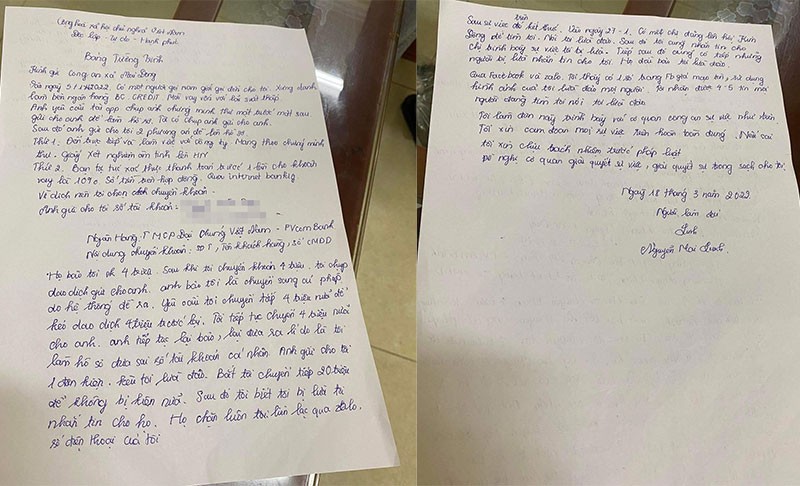 Cộng hòa xã hội chủ nghĩa Việt Nam
Độc lập - Tự do - Hạnh phúc
Bảng Tường trình
Kính gửi Công an xã
ngày 5/1/2022. Có một người gọi nam giới gọi đến cho tôi. Xưng danh
làm bên ngân hàng BC CREDIT. Mời vay với lãi suất thấp
Anh yêu cầu tôi chụp anh chứng minh thư mặt trước mặt sau
gửi cho anh để làm hồ sơ. Tôi có chụp anh gửi cho anh.
Sau đó anh gửi cho tôi 2 phương án để làm hồ sơ
Thứ 1. Đến trực tiếp và làm việc với công ty Mang theo chứng minh
thư. Giấy xét nghiệm âm tính lần
Thứ 2. Bạn tự xác thực thanh toán trước 1 lần cho khoản
vay là 10%. Số tiền trên hợp đồng. Qua internet banking
Vì dịch nên tôi chọn chuyển khoản.
Anh gửi cho tôi số tài khoản:
Ngân Hàng TMCP Đại Chúng Việt Nam - PVcomBank
Nội dung chuyển khoản: SDT, Tên khách hàng, số CMDD
Họ báo tôi 4 triệu. Sau khi tôi chuyển khoản 4 triệu. tôi chụp
dao dịch gửi cho anh. anh báo tôi là chuyển sang cú pháp
do hệ thống đề ra. Yêu cầu tôi chuyển tiếp 4 triệu nữa để
kéo dao dịch 4 triệu trước lại. Tôi tiếp tục chuyển 4 triệu nữa
cho anh. anh tiếp tục lại báo, lại đưa ra lí do là tôi
làm hồ sơ đưa sai số tài khoản cá nhân. Anh gửi cho tôi
1 đơn kiện. kêu tôi lừa đảo. Bắt tôi chuyển tiếp 20 triệu
để không bị kiện nữa. Sau đó tôi biết tôi bị lừa tôi
nhắn tin cho họ. Họ chặn luôn tôi liên lạc qua zalo.
số điện thoại của tôi
Sau sự việc trên đã kết thúc. Vào ngày 27-1. Có một chị đứng lên hỏi Kim
Sống để tìm tôi. Nói tôi lừa đảo. Sau đó tôi cũng nhắn tin cho
chị trình bày sự việc tôi bị lừa. Tiếp sau đó cũng có tiếp những
người bị lừa nhắn tin cho tôi. Họ đều bảo tôi lừa đảo.
Qua facebook và zalo. Tôi thấy có 1 số trang Fb giả mạo tôi, sử dụng
hình ảnh của tôi lừa đảo mọi người. Tôi nhận được 4-5 tin mà
người đang tìm tôi nói tôi lừa đảo.
Tôi làm đơn này trình bày với cơ quan công an sự việc như trên.
Tôi xin cam đoan mọi sự việc trên hoàn toàn đúng. Nếu sai
tôi xin chịu trách nhiệm trước pháp luật
Đề nghị cơ quan giải quyết sự việc, giải quyết sự trong sạch cho tôi.
Ngày 18 tháng 3 năm 2022.
Người làm đơn
Linh
Nguyễn Mai Linh